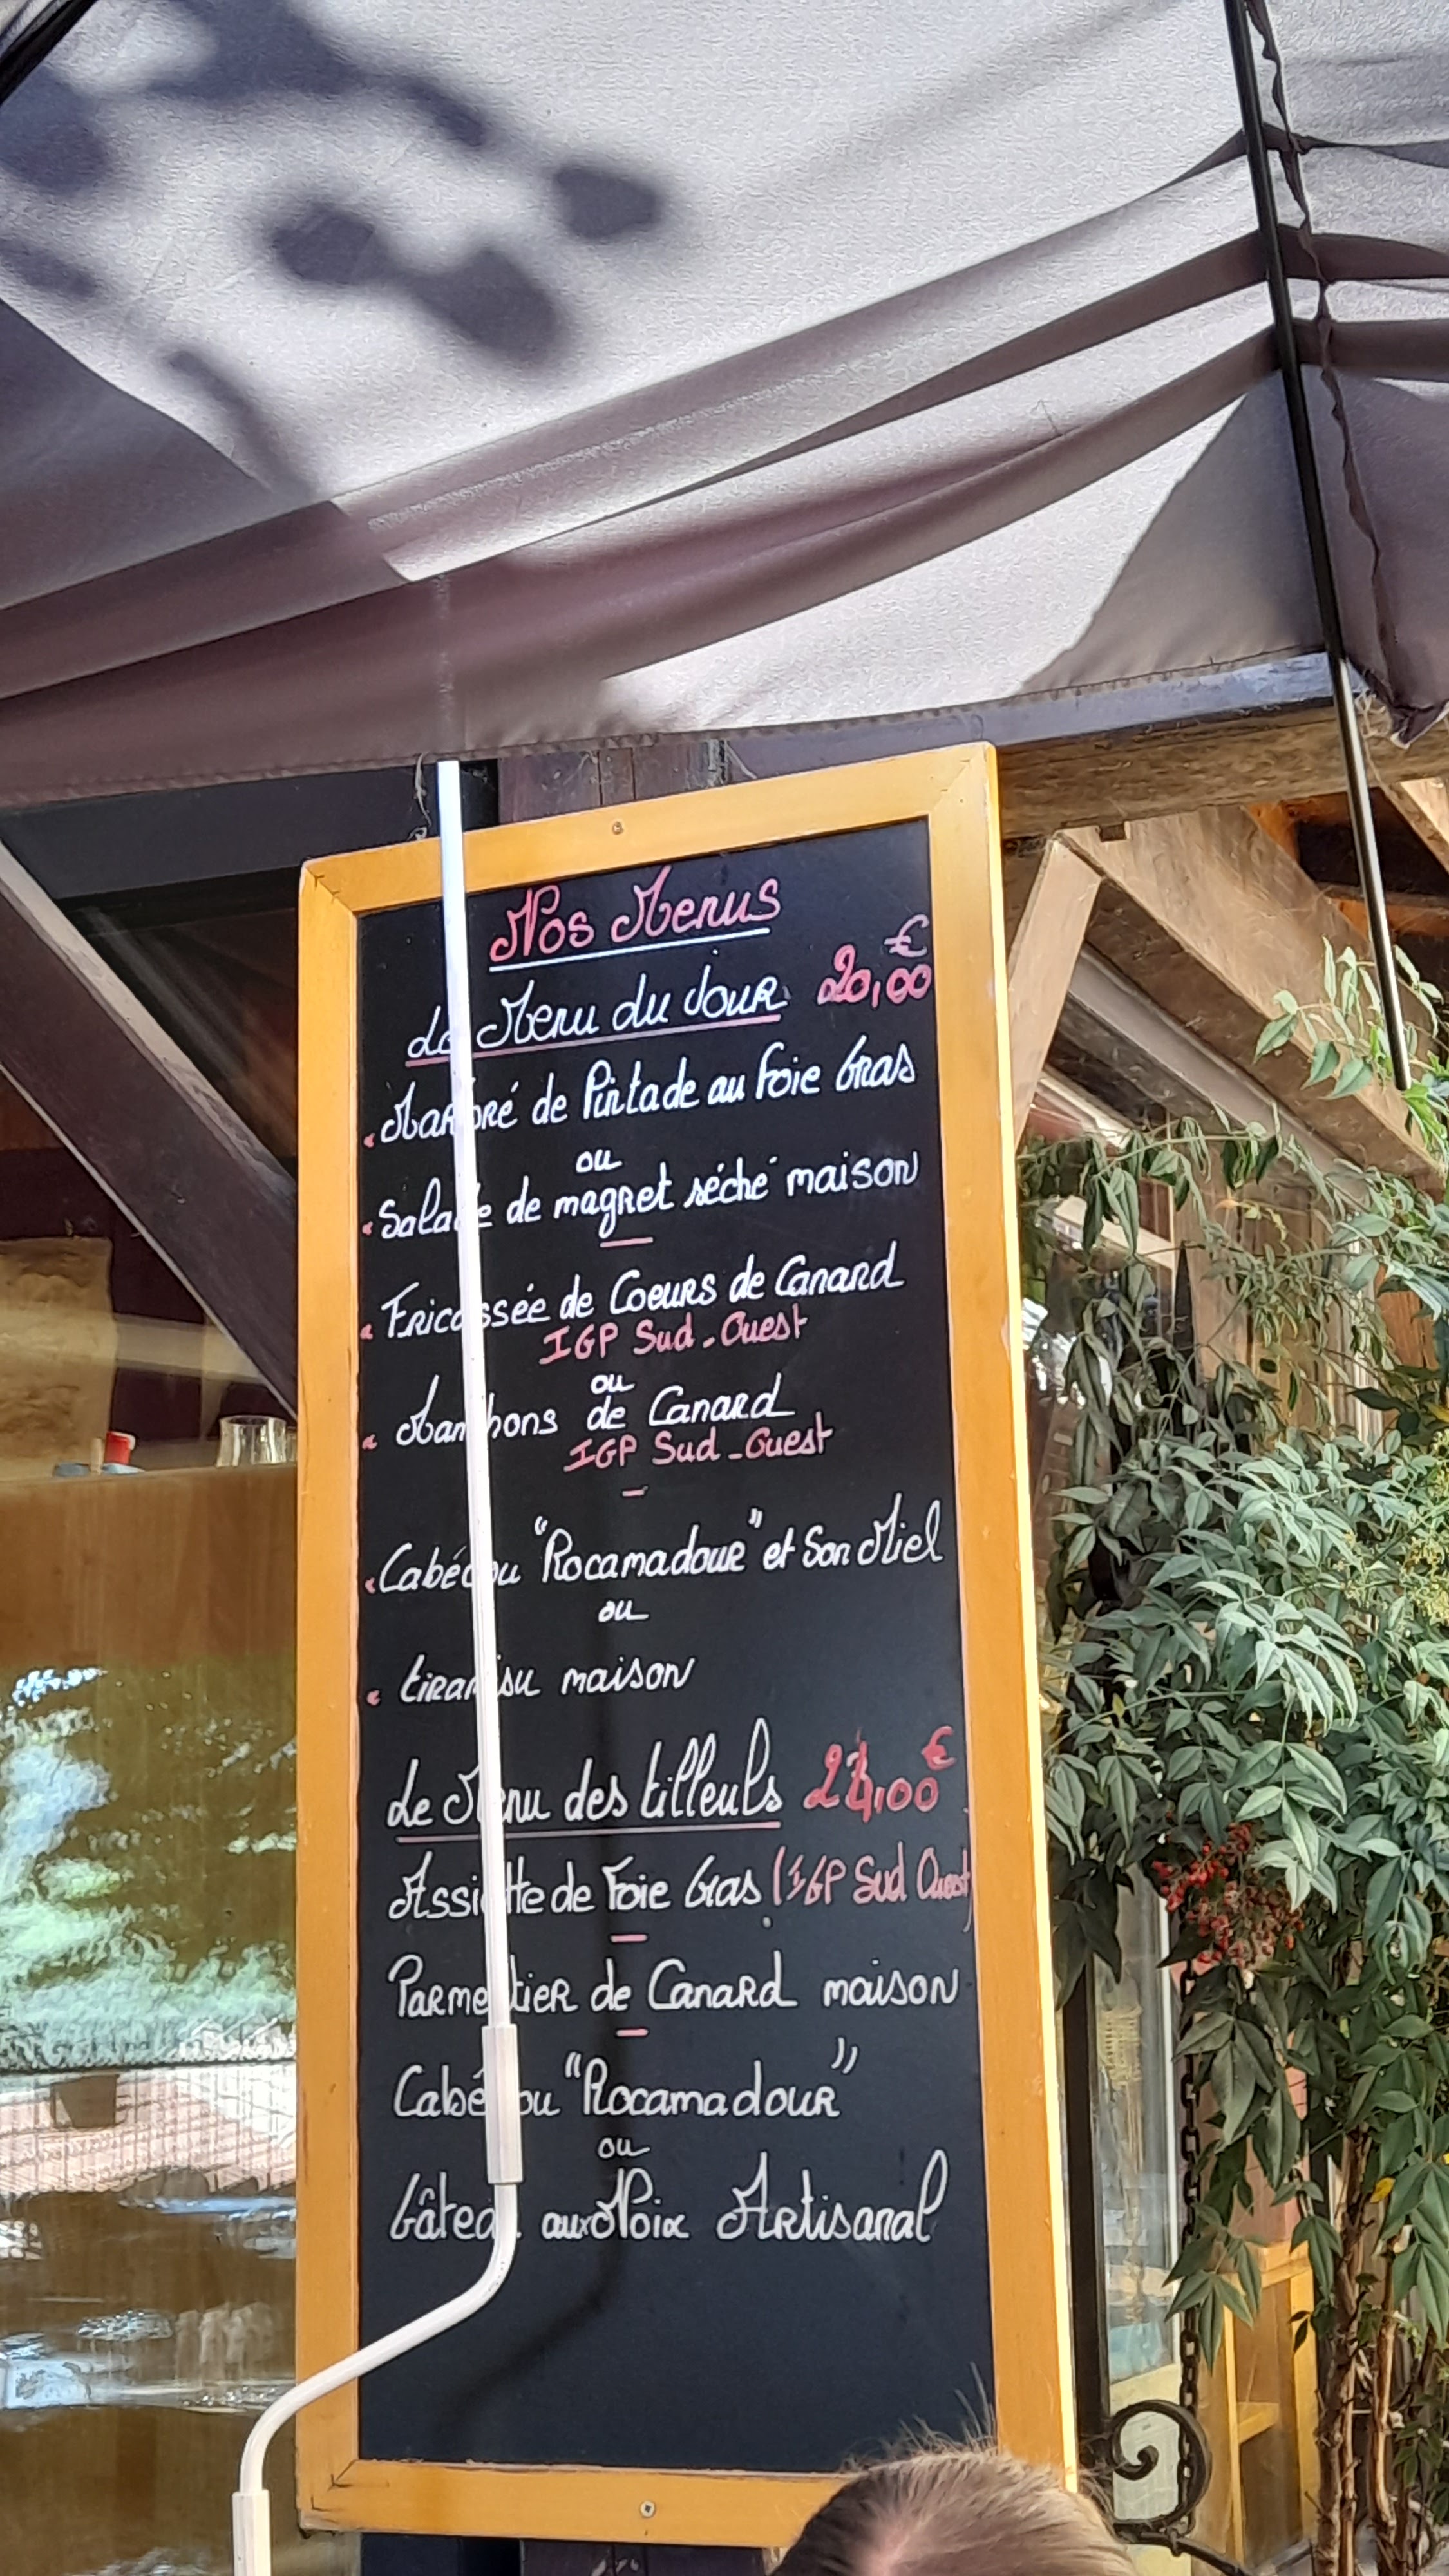 Nos Menus
Le Menu du Jour 20,00 €
Marbré de Pintade au Foie Gras
ou
Salade de magret séché maison
Fricassée de Coeurs de Canard
IGP Sud-Ouest
ou
Manchons de Canard
IGP Sud-Ouest
Cabécou "Rocamadour" et Son Miel
ou
tiramisu maison
Le Menu des tilleuls €
Assiette de Foie Gras (IGP Sud Ouest)
Parmentier de Canard maison
Cabécou "Rocamadour"
ou
Gâteau aux Noix Artisanal